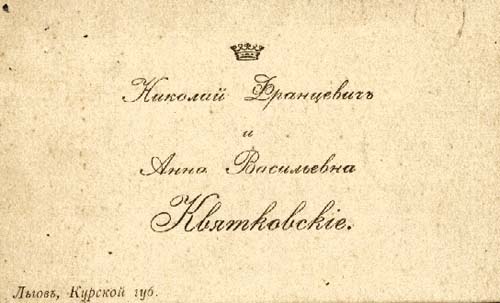 Николай Францевичъ
и
Анна Васильевна
Квятковскіе.
Льговъ, Курской губ.